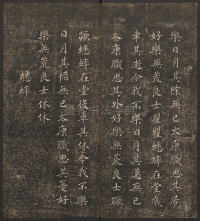 樂日月其除無已大康職思其居
好樂無荒良士瞿瞿蟋蟀在堂歲
聿其逝今我不樂日月其邁無已
大康職思其外好樂無荒良士蹶
蹶蟋蟀在堂役車其休今我不樂
日月其慆無已大康職思其憂好
樂無荒良士休休
蟋蟀